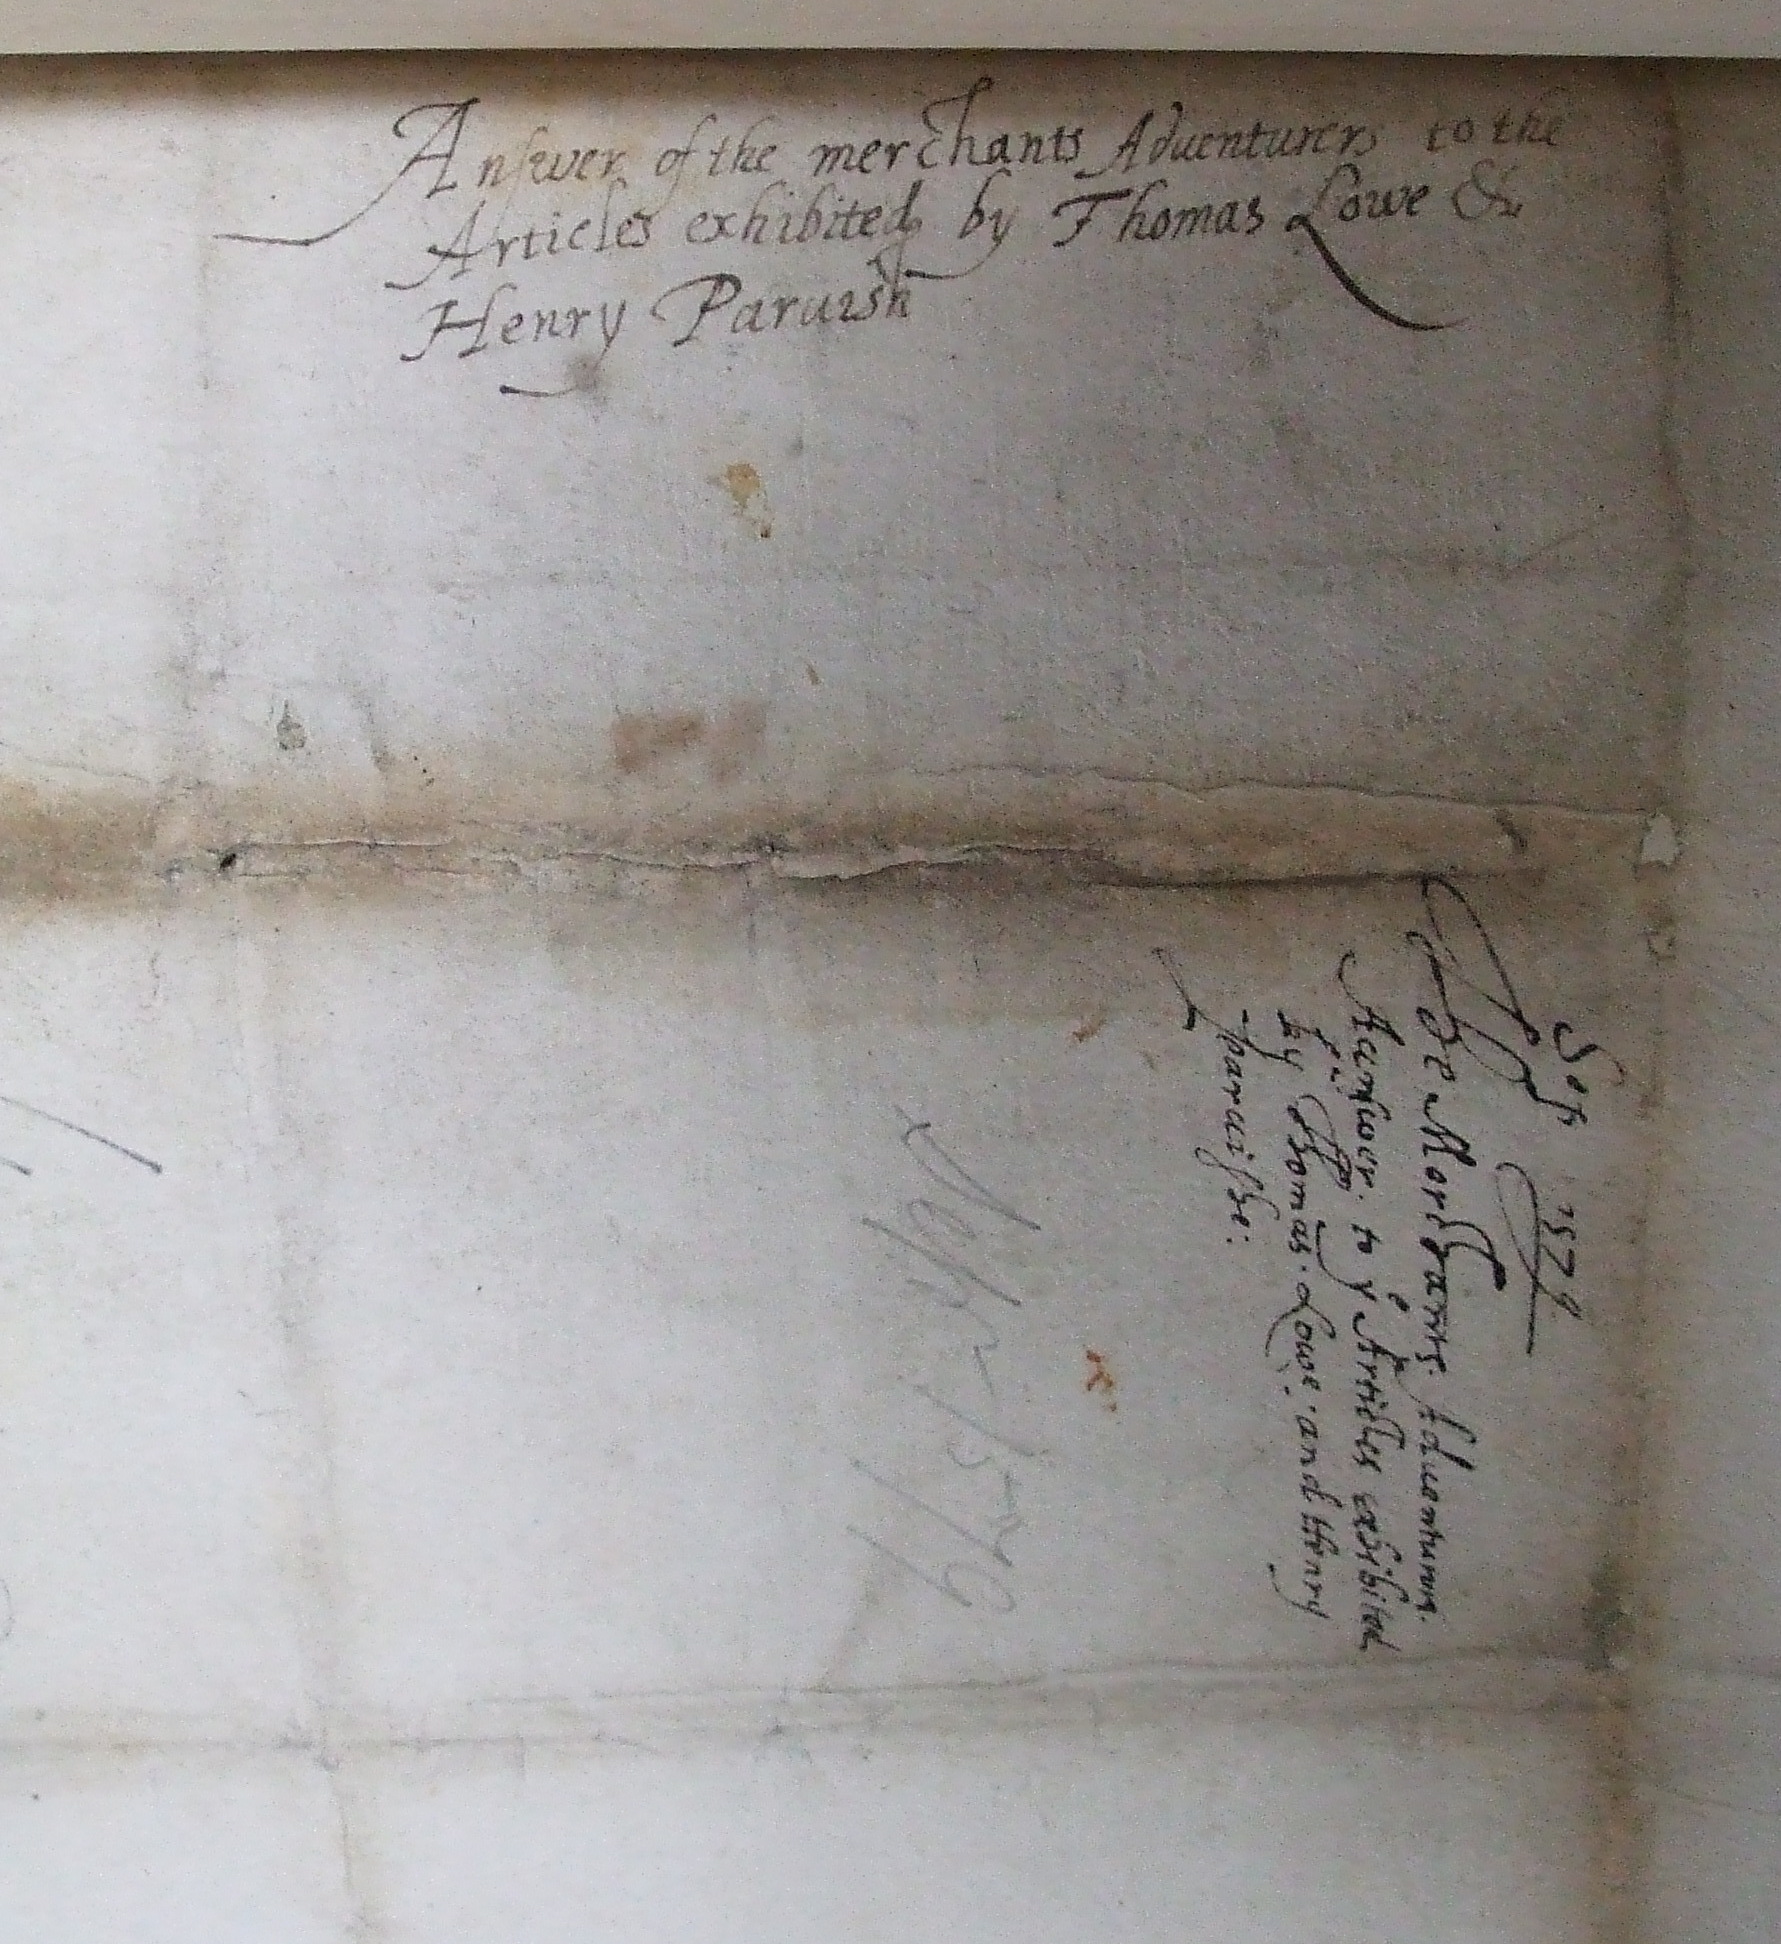 Answer of the merchants Aduenturers to the
Articles exhibited by Thomas Lowe &
Henry Paruish
Sep 1579
The Marchants Aduenturers
Aunswer to yᵉ Articles exhibited
by Thomas Lowe and Henry
paruishe:
Sepr 1579